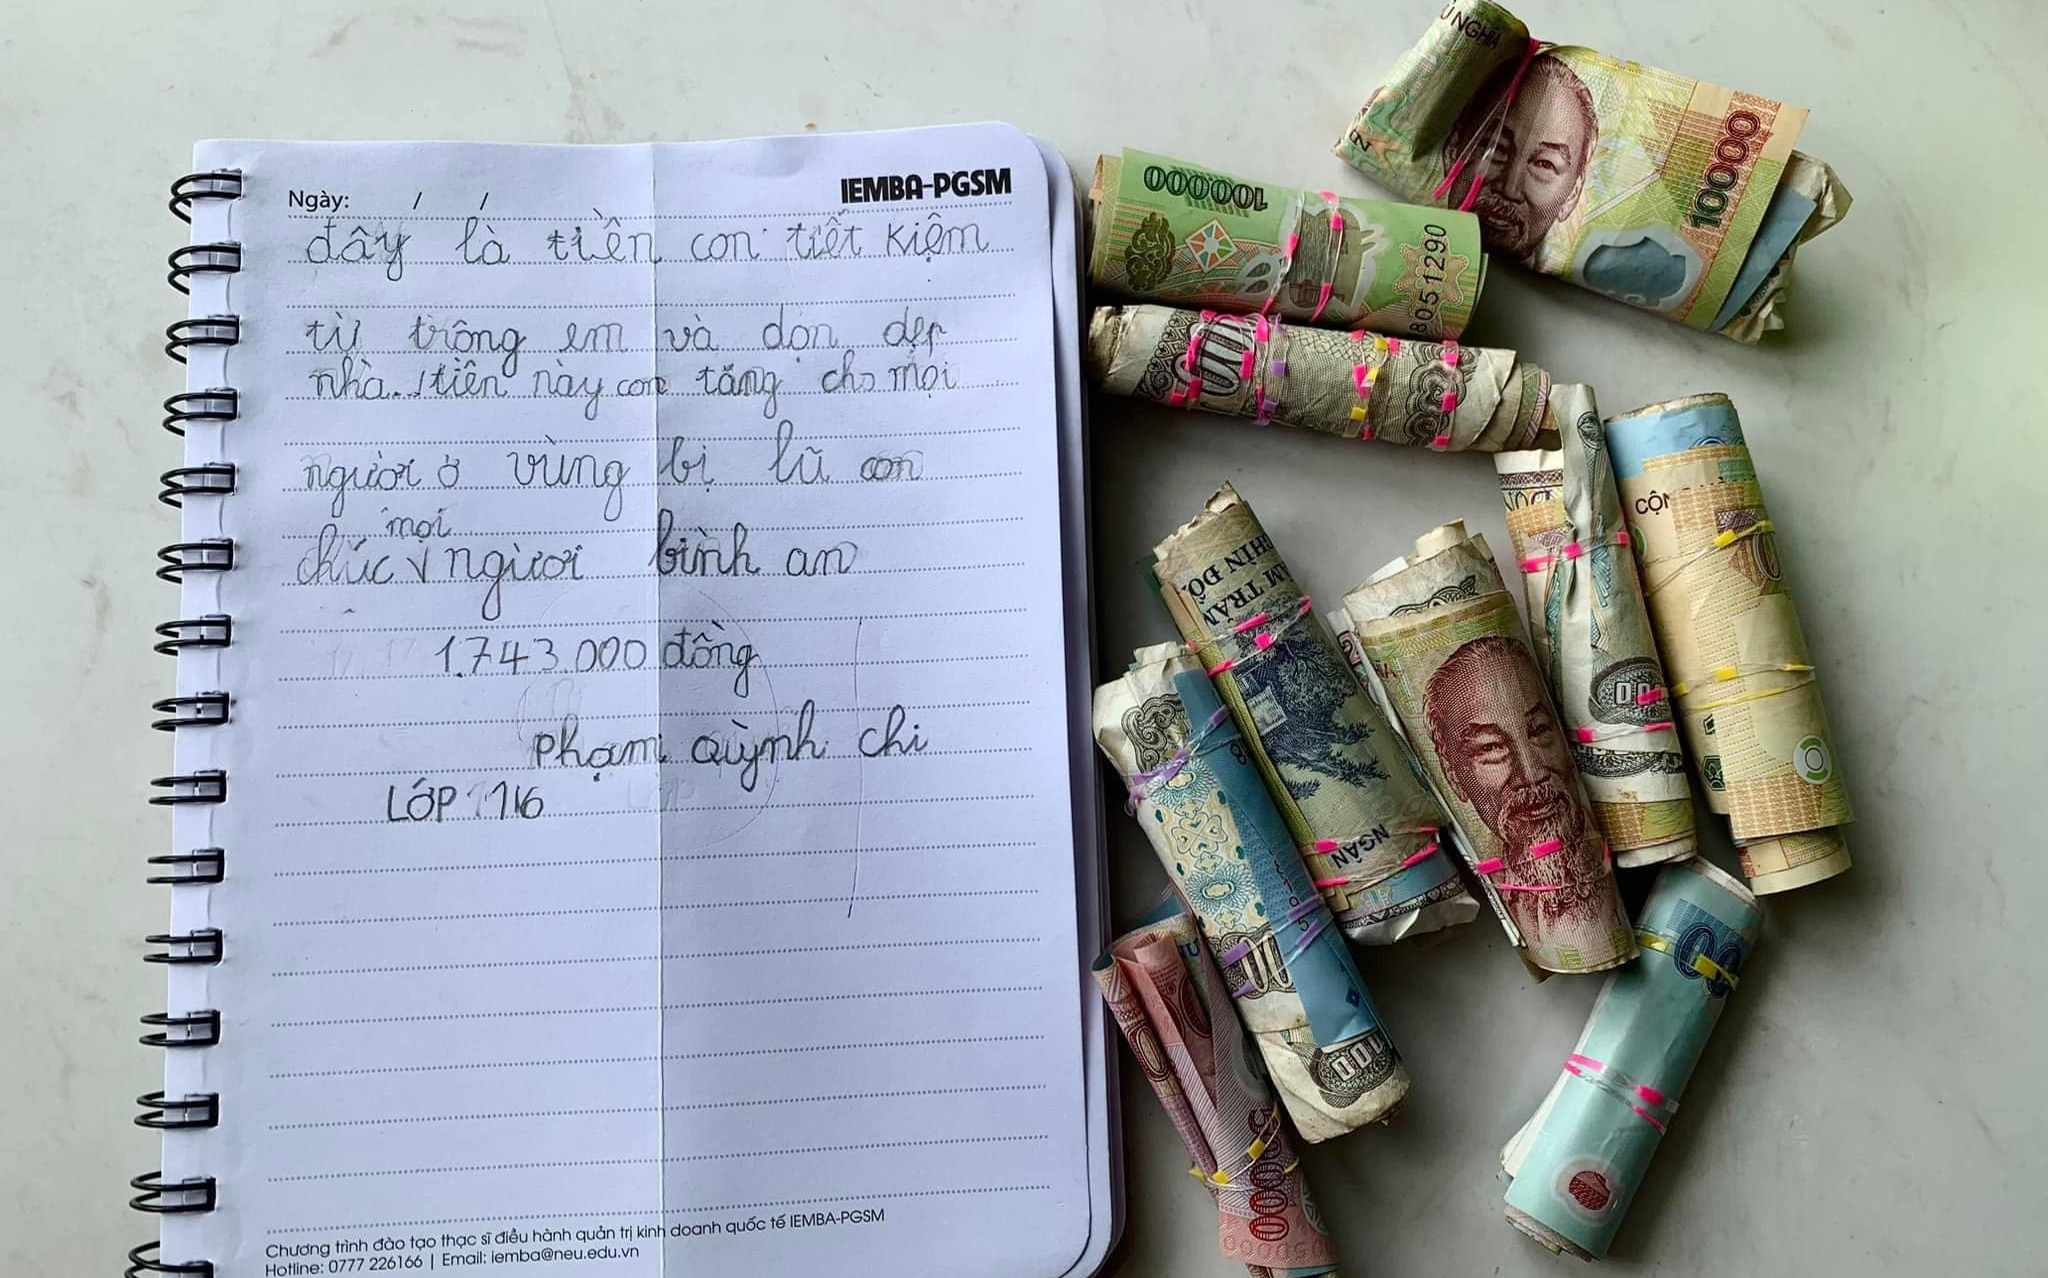 Ngày: / /
IEMBA-PGSM
đây là tiền con tiết kiệm
từ trông em và dọn dẹp
nhà. tiền này con tặng cho mọi
người ở vùng bị lũ con
mọi
chúc √ người bình an
1.743.000 đồng
phạm quỳnh chi
LỚP 116
Chương trình đào tạo thạc sĩ điều hành quản trị kinh doanh quốc tế IEMBA-PGSM
Hotline: 0777 226166 | Email: iemba@neu.edu.vn
Ủ NGHĨA
10000
100000
8051290
CỘN
ĂM TRĂM
GHÌN ĐỒ
NGÂN
50000